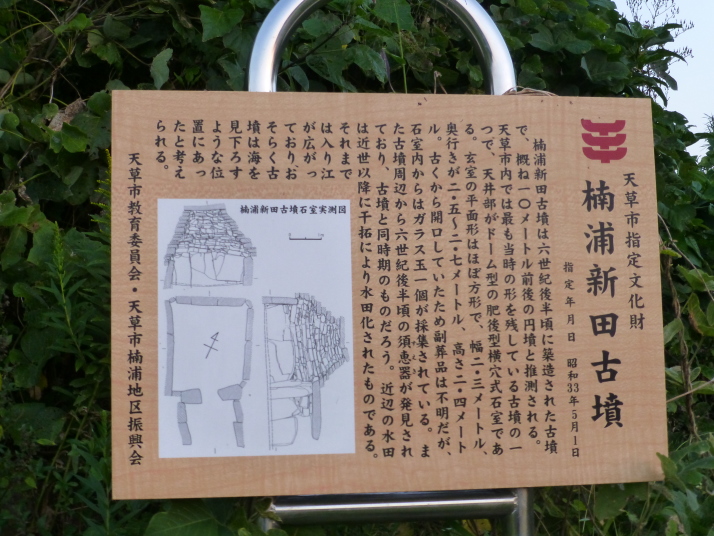 天草市指定文化財
楠浦新田古墳
指定年月日　昭和33年5月1日
楠浦新田古墳は六世紀後半頃に築造された古墳
で、概ね一〇メートル前後の円墳と推測される。
天草市内では最も当時の形を残している古墳の一
つで、天井部がドーム型の肥後型横穴式石室であ
る。玄室の平面形はほぼ方形で、幅二・三メートル、
奥行きが二・五～二・七メートル、高さ二・四メート
ル。古くから開口していたため副葬品は不明だが、
石室内からはガラス玉一個が採集されている。ま
た古墳周辺から六世紀後半頃の須恵器が発見され
ており、古墳と同時期のものだろう。近辺の水田
は近世以降に干拓により水田化されたものである。
それまで
は入り江
が広がっ
ており、お
そらく古
墳は海を
見下ろす
ような位
置にあっ
たと考え
られる。
楠浦新田古墳石室実測図
天草市教育委員会・天草市楠浦地区振興会